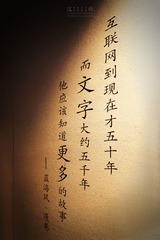 互联网到现在才五十年
而文字大约五千年
他应该知道更多的故事